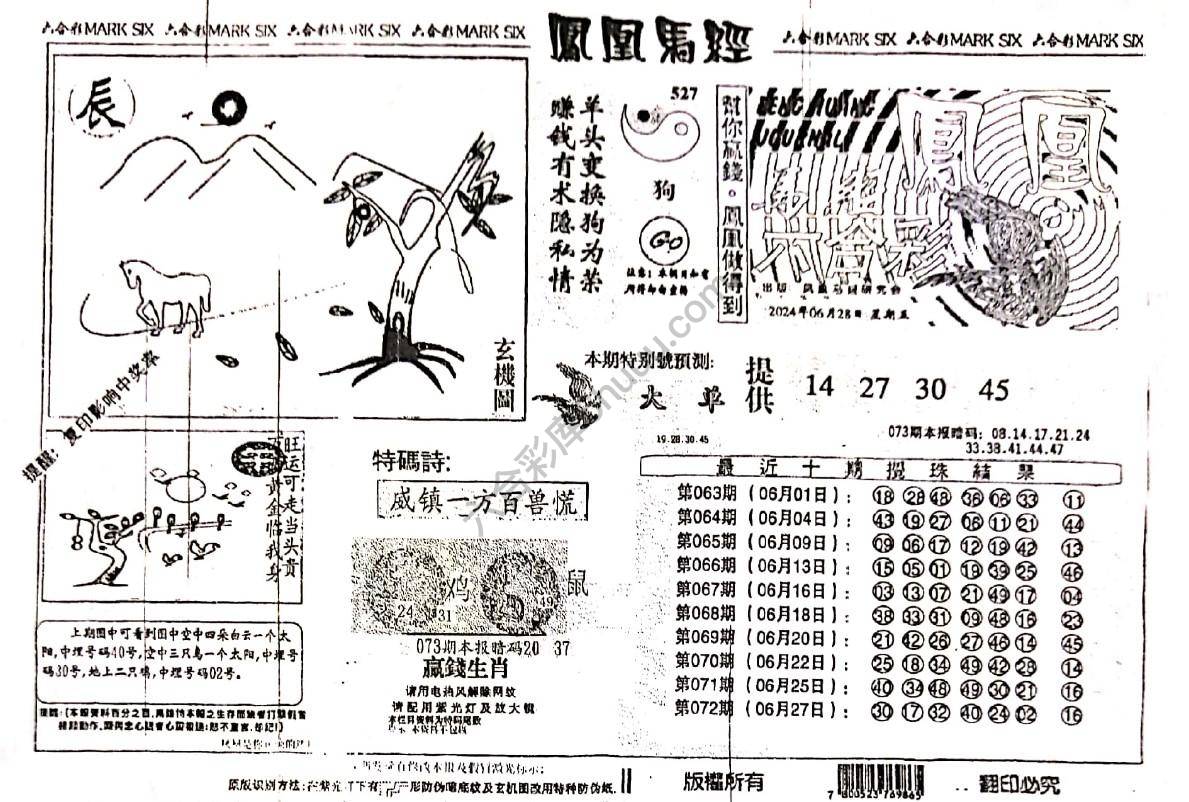 六合彩MARK SIX 六合彩MARK SIX 六合彩MARK SIX 六合彩MARK SIX
鳳凰馬經
六合彩MARK SIX 六合彩MARK SIX 六合彩MARK SIX
辰
玄機圖
提醒：复印影响中奖率
羊头变换狗为荣
赚钱有术隐私情
527
狗
GO
幫你贏錢。鳳凰做得到
FENG HUANG
鳳凰
馬經
六合彩
2024年06月28日 星期五
本期特别號預測:
火 单
提供
14 27 30 45
19.28.30.45
073期本报暗码: 08.14.17.21.24
33.38.41.44.47
最近十期攪珠結果
第063期（06月01日）: 18 28 48 36 06 33 11
第064期（06月04日）: 43 19 27 06 11 21 44
第065期（06月09日）: 09 06 17 12 19 42 13
第066期（06月13日）: 15 05 01 19 39 25 46
第067期（06月16日）: 03 13 07 21 49 17 04
第068期（06月18日）: 38 33 31 09 48 16 23
第069期（06月20日）: 21 42 26 27 46 14 45
第070期（06月22日）: 25 18 34 49 42 28 14
第071期（06月25日）: 40 34 48 49 30 21 16
第072期（06月27日）: 30 17 32 40 24 02 16
旺运可走当头贵
黄金临我身
特碼詩:
威镇一方百兽慌
鸡
鼠
24 31
49
073期本报暗码20 37
赢錢生肖
请用电热风解除网纹
请配用紫光灯及放大镜
本栏目资料为特码尾数
上期图中可看到图中空中四朵白云一个太
阳,中埋号码40号,空中三只鸟一个太阳,中埋号
码30号,地上二只鸡,中埋号码02号。
版權所有
翻印必究
7 800523 769865
六合彩库